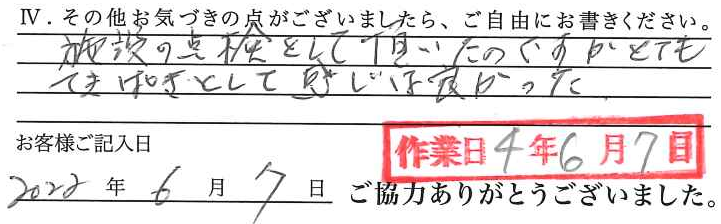 Ⅳ．その他お気づきの点がございましたら、ご自由にお書きください。
施設の点検をして頂いたのですがとても
てきぱきとして感じは良かった
お客様ご記入日
作業日4年6月7日
2022年6月7日 ご協力ありがとうございました。